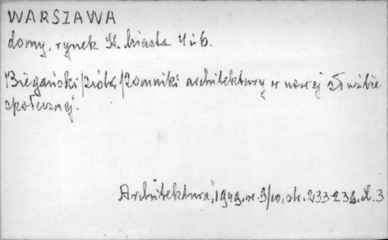 WARSZAWA
domy, rynek St. Miasta 4 i 6.
Biegański Piotr, Pomniki architektury w nowej służbie
społecznej.
Architektura, 1949, nr. 9/10, str. 233-238, il. 3